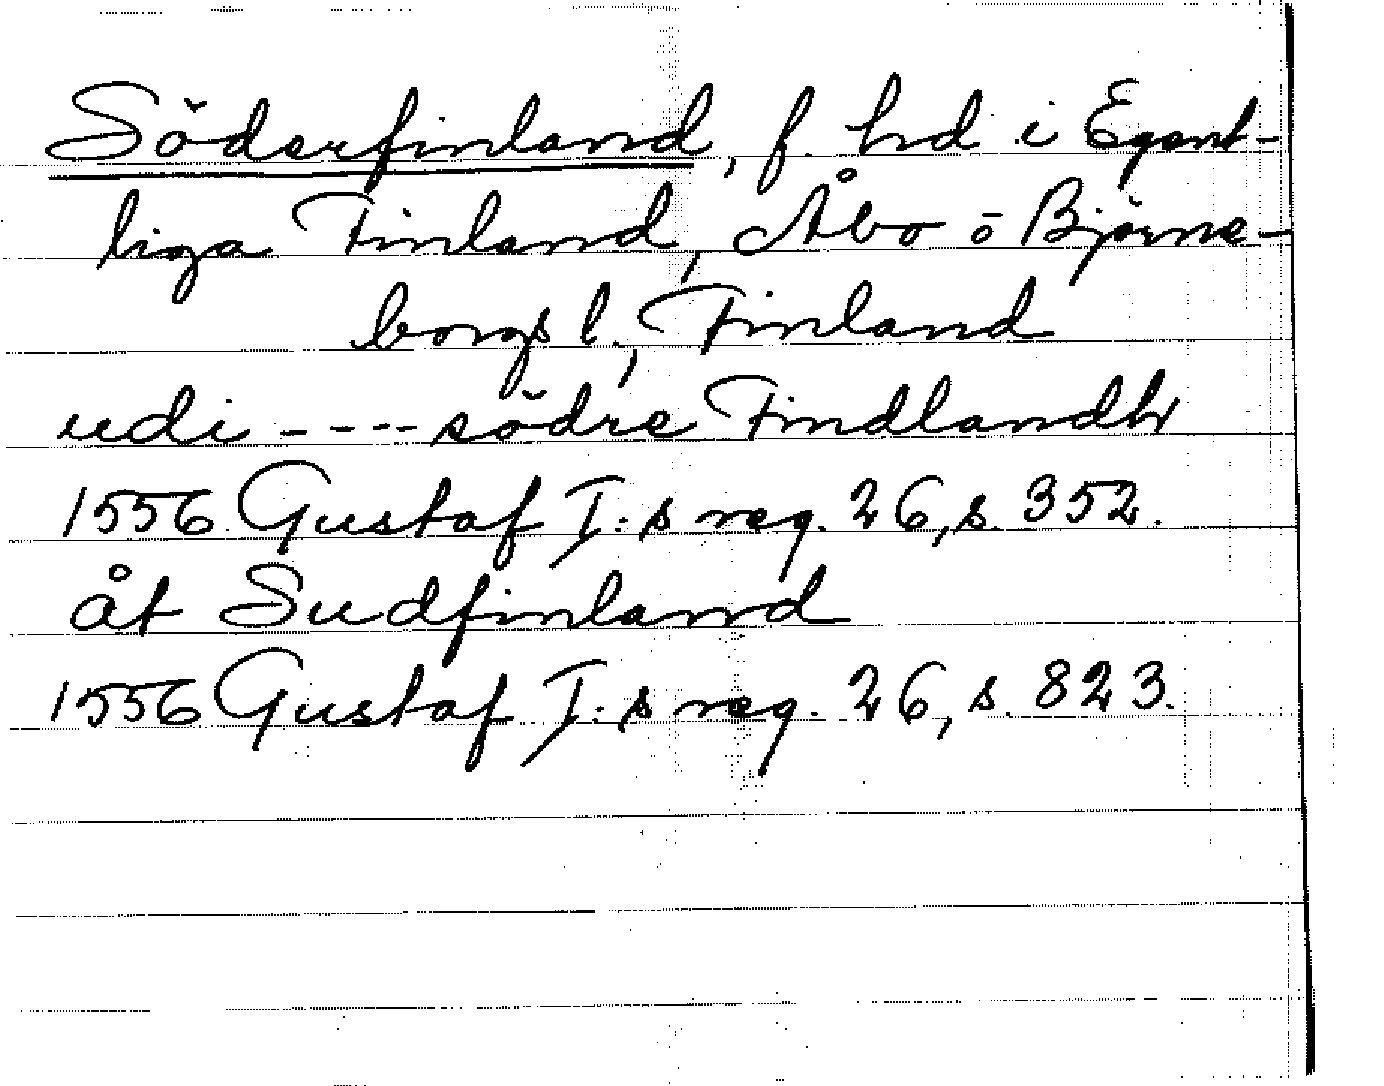 Söderfinland, f. hd i Egent-
liga Finland, Åbo o Björne-
borgs l., Finland
udi ---- södre Findlandh
1556 Gustaf I:s reg. 26, s. 352.
åt Sudfinland
1556 Gustaf I:s reg. 26, s. 823.